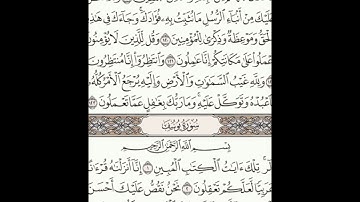 عَلَيْكَ مِنْ أَنۢبَآءِ ٱلرُّسُلِ مَا نُثَبِّتُ بِهِۦ فُؤَادَكَۚ وَجَآءَكَ فِى هَٰذِهِ
ٱلْحَقُّ وَمَوْعِظَةٌ وَذِكْرَىٰ لِلْمُؤْمِنِينَ ١٢٠ وَقُل لِّلَّذِينَ لَا يُؤْمِنُونَ
ٱعْمَلُوا۟ عَلَىٰ مَكَانَتِكُمْ إِنَّا عَٰمِلُونَ ١٢١ وَٱنتَظِرُوٓا۟ إِنَّا مُنتَظِرُونَ
وَلِلَّهِ غَيْبُ ٱلسَّمَٰوَٰتِ وَٱلْأَرْضِ وَإِلَيْهِ يُرْجَعُ ٱلْأَمْرُ كُلُّهُۥ
فَٱعْبُدْهُ وَتَوَكَّلْ عَلَيْهِۚ وَمَا رَبُّكَ بِغَٰفِلٍ عَمَّا تَعْمَلُونَ ١٢٣
سُورَةُ يُوسُفَ
بِسْمِ ٱللَّهِ ٱلرَّحْمَٰنِ ٱلرَّحِيمِ
الٓرۚ تِلْكَ ءَايَٰتُ ٱلْكِتَٰبِ ٱلْمُبِينِ ١ إِنَّآ أَنزَلْنَٰهُ قُرْءَٰنًا
عَرَبِيًّا لَّعَلَّكُمْ تَعْقِلُونَ ٢ نَحْنُ نَقُصُّ عَلَيْكَ أَحْسَنَ